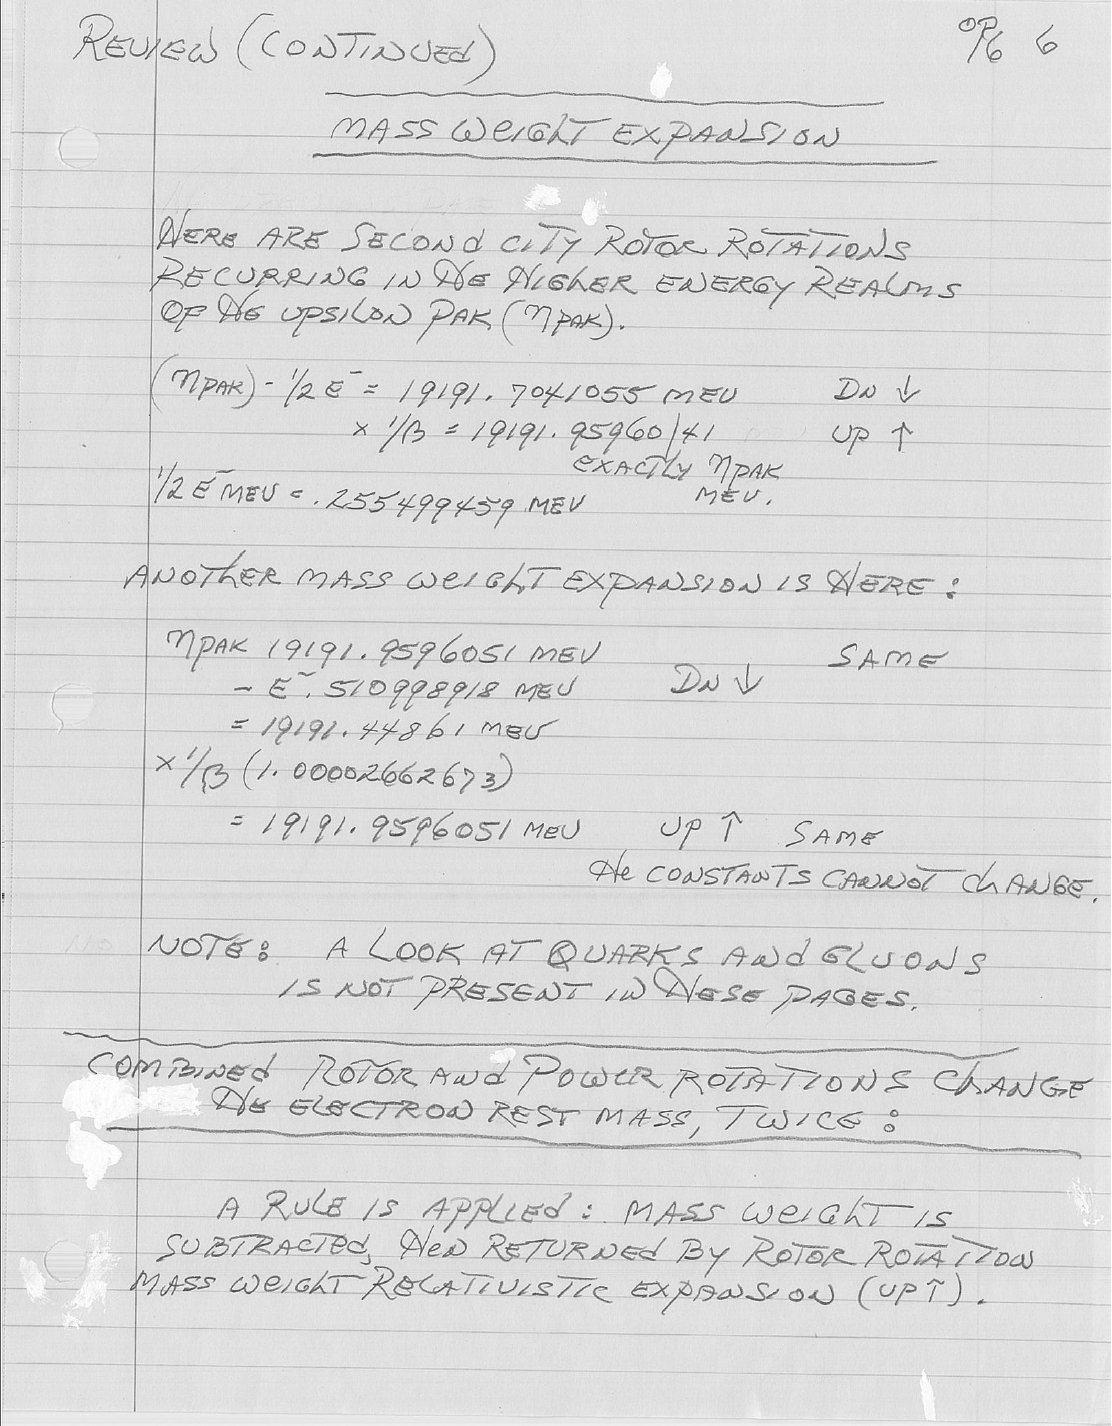 REVIEW (CONTINUED)
OPG 6
MASS WEIGHT EXPANSION
HERE ARE SECOND CITY ROTOR ROTATIONS
RECURRING IN THE HIGHER ENERGY REALMS
OF THE UPSILON PAK (ηPAK).
(ηPAK) - 1/2 E⁻ = 19191.7041055 MEV DN ↓
x 1/β = 19191.95960/41 UP ↑
EXACTLY ηPAK
MEV.
1/2 E⁻ MEV = .255499459 MEV
ANOTHER MASS WEIGHT EXPANSION IS HERE:
ηPAK 19191.9596051 MEV SAME
- E⁻ .510998918 MEV DN ↓
= 19191.44861 MEV
x 1/β (1.00002662673)
= 19191.9596051 MEV UP ↑ SAME
THE CONSTANTS CANNOT CHANGE.
NOTE: A LOOK AT QUARKS AND GLUONS
IS NOT PRESENT IN THESE PAGES.
COMBINED ROTOR AND POWER ROTATIONS CHANGE
THE ELECTRON REST MASS, TWICE:
A RULE IS APPLIED: MASS WEIGHT IS
SUBTRACTED, THEN RETURNED BY ROTOR ROTATION
MASS WEIGHT RELATIVISTIC EXPANSION (UP↑).